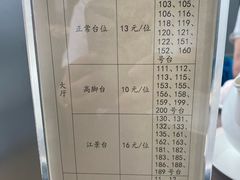 大厅
正常台位
13 元/位
103、105、
106、115、
116、118、
119、120、
121、122、
151、152、
152、160
号台
高脚台
10 元/位
111、112、
113、115、
156、158、
159、199、
200 号台
江景台
16 元/位
130、131、
132、133、
135、161、
162、163、
165、181、
182、183、
185、186、
188、
189 号台